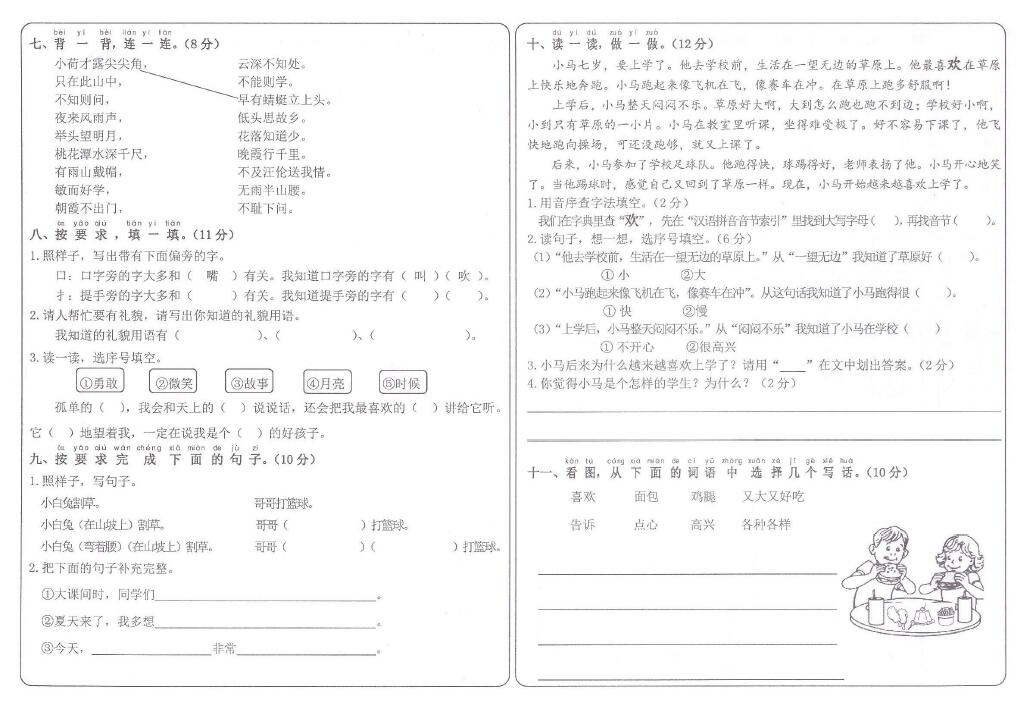 bèi yì bèi lián yì lián
七、背 一 背，连 一 连。（8 分）
小荷才露尖尖角， 云深不知处。
只在此山中， 不能则学。
不知则问， 早有蜻蜓立上头。
夜来风雨声， 低头思故乡。
举头望明月， 花落知道少。
桃花潭水深千尺， 晚霞行千里。
有雨山戴帽， 不及汪伦送我情。
敏而好学， 无雨半山腰。
朝霞不出门， 不耻下问。
àn yāo qiú tián yì tián
八、按 要 求 ，填 一 填。（11 分）
1.照样子，写出带有下面偏旁的字。
口：口字旁的字大多和（ 嘴 ）有关。我知道口字旁的字有（ 叫 ）（ 吹 ）。
扌：提手旁的字大多和（ ）有关。我知道提手旁的字有（ ）（ ）。
2.请人帮忙要有礼貌，请写出你知道的礼貌用语。
我知道的礼貌用语有（ ）、（ ）、（ ）。
3.读一读，选序号填空。
①勇敢 ②微笑 ③故事 ④月亮 ⑤时候
孤单的（ ），我会和天上的（ ）说说话，还会把我最喜欢的（ ）讲给它听。
它（ ）地望着我，一定在说我是个（ ）的好孩子。
àn yāo qiú wán chéng xià miàn de jù zi
九、按 要 求 完 成 下 面 的 句 子。（10 分）
1.照样子，写句子。
小白兔割草。 哥哥打篮球。
小白兔（在山坡上）割草。 哥哥（ ）打篮球。
小白兔（弯着腰）（在山坡上）割草。 哥哥（ ）（ ）打篮球。
2.把下面的句子补充完整。
①大课间时，同学们____________。
②夏天来了，我多想____________。
③今天，____________非常____________。
dú yi dú zuò yi zuò
十、读 一 读，做 一 做。（12 分）
小马七岁，要上学了。他去学校前，生活在一望无边的草原上。他最喜欢在草原
上快乐地奔跑。小马跑起来像飞机在飞，像赛车在冲。在草原上跑多舒服啊！
上学后，小马整天闷闷不乐。草原好大啊，大到怎么跑也跑不到边；学校好小啊，
小到只有草原的一小片。小马在教室里听课，坐得难受极了。好不容易下课了，他飞
快地跑向操场，可还没跑够，就又上课了。
后来，小马参加了学校足球队。他跑得快，球踢得好，老师表扬了他。小马开心地笑
了。当他踢球时，感觉自己又回到了草原一样。现在，小马开始越来越喜欢上学了。
1.用音序查字法填空。（2 分）
我们在字典里查“欢”，先在“汉语拼音音节索引”里找到大写字母（ ），再找音节（ ）。
2.读句子，想一想，选序号填空。（6 分）
（1）“他去学校前，生活在一望无边的草原上。”从“一望无边”我知道了草原好（ ）。
① 小 ②大
（2）“小马跑起来像飞机在飞，像赛车在冲”。从这句话我知道了小马跑得很（ ）。
① 快 ②慢
（3）“上学后，小马整天闷闷不乐。”从“闷闷不乐”我知道了小马在学校（ ）
① 不开心 ②很高兴
3.小马后来为什么越来越喜欢上学了？请用“____”在文中划出答案。（2 分）
4.你觉得小马是个怎样的学生？为什么？（2 分）
kàn tú cóng xià miàn de cí yǔ zhōng xuǎn zé jǐ gè xiě huà
十一、看 图，从 下 面 的 词 语 中 选 择 几 个 写 话。（10 分）
喜欢 面包 鸡腿 又大又好吃
告诉 点心 高兴 各种各样